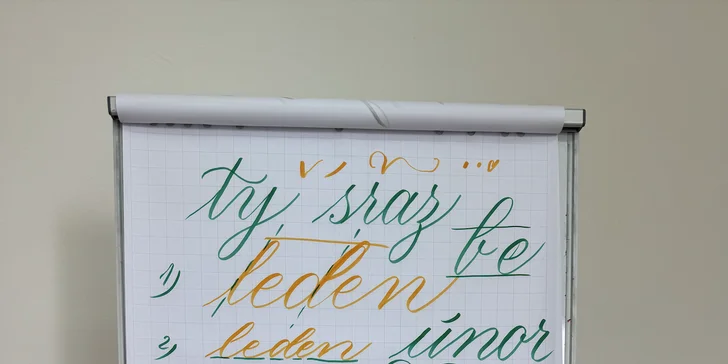 ty sraz
be
1) leden
2) leden únor